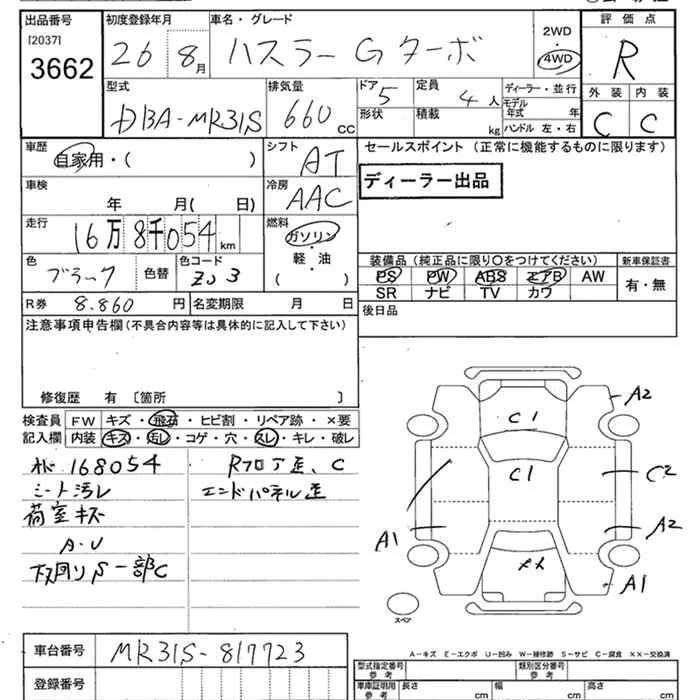 出品番号 初度登録年月 車名・グレード 2WD 評価点
[2037] 3662 26 8月 ハスラー Gターボ 4WD R
型式 排気量 ドア 5 定員 4人 ディーラー・並行 外装 内装
DBA-MR31S 660 CC 形状 積載 kg モデル年式 年 C C
ハンドル 左・右
車歴 シフト セールスポイント (正常に機能するものに限ります)
自家用・( ) AT
ディーラー出品
車検 冷房
年 月( 日) AAC
走行 燃料
16万8千054km ガソリン・軽・油 ( )
装備品(純正品に限り○をつけてください) 新車保証書
色 色コード
ブラック 色替 ZJ3
PS PW ABS エアB AW 有・無
SR ナビ TV カワ
R券 8.860円 名変期限 月 日 後日品
注意事項申告欄(不具合内容等は具体的に記入して下さい)
修復歴 有 〔箇所 〕
検査員 FW キズ・飛石・ヒビ割・リペア跡・×要
記入欄 内装 キズ・汚レ・コゲ・穴・スレ・キレ・破レ
168054 Rフロア歪、C
シート汚レ エンドパネル歪
荷室キズ
A・U
下回りS一部C
C1 A2
C1 C2
A1 A2
A1
スペア
A-キズ E-エクボ U-凹み W-補修跡 S-サビ C-腐食 ××-交換済
車台番号 MR31S-817723
型式指定番号 参考 類別区分番号 参考
登録番号
車庫証明用 参考 長さ cm 幅 cm 高さ cm